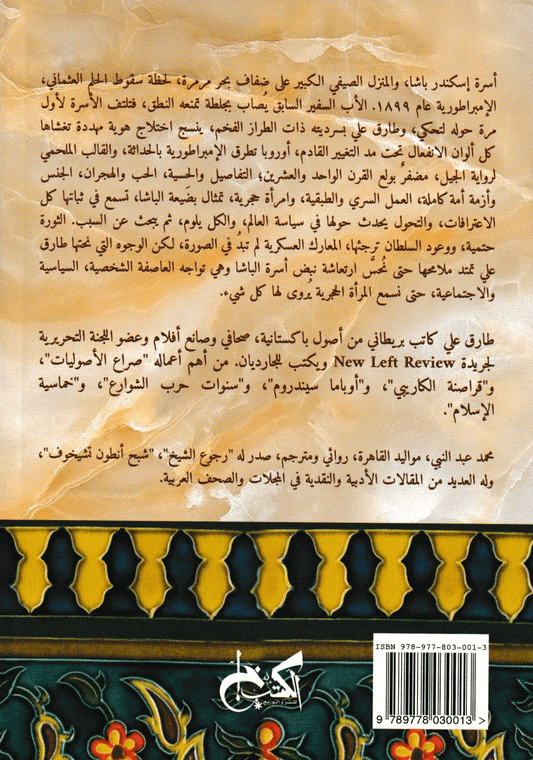 أسرة إسكندر باشا، والمنزل الصيفي الكبير على ضفاف بحر مرمرة، لحظة سقوط الحلم العثماني،
الإمبراطورية عام ١٨٩٩. الأب السفير السابق يُصاب بجلطة تمنعه النطق، فتلتف الأسرة لأول
مرة حوله لتحكي، وطارق علي بسرديته ذات الطراز الفخم، ينسج اختلاج هوية مهددة تغشاها
كل ألوان الانفعال تحت مد التغيير القادم، أوروبا تطرق الإمبراطورية بالحداثة، والقالب الملحمي
لرواية الجيل، مضفرٌ بولع القرن الواحد والعشرين؛ التفاصيل والحسية، الحب والهجران، الجنس
وأزمة أمة كاملة، العمل السري والطبقية، وامرأة حجرية، تمثال بضَيعة الباشا، تسمع في ثباتها كل
الاعترافات، والتحول يحدث حولها في سياسة العالم، والكل يلوم، ثم يبحث عن السبب. الثورة
حتمية، ووعود السلطان ترجئها، المعارك العسكرية لم تبدُ في الصورة، لكن الوجوه التي نحتها طارق
علي تمتد ملامحها حتى نُحسَّ ارتعاشة نبض أسرة الباشا وهي تواجه العاصفة الشخصية، السياسية
والاجتماعية، حتى نسمع المرأة الحجرية يُروى لها كل شيء.
طارق علي كاتب بريطاني من أصول باكستانية، صحافي وصانع أفلام وعضو اللجنة التحريرية
لجريدة New Left Review ويكتب للجارديان. من أهم أعماله "صراع الأصوليات"،
و"قراصنة الكاريبي"، و"أوباما سيندروم"، و"سنوات حرب الشوارع"، و"خماسية
الإسلام".
محمد عبد النبي، مواليد القاهرة، روائي ومترجم، صدر له "رجوع الشيخ"، "شبح أنطون تشيخوف"،
وله العديد من المقالات الأدبية والنقدية في المجلات والصحف العربية.
ISBN 978-977-803-001-3
الكتب خان
للنشر والتوزيع
9 789778 030013 >